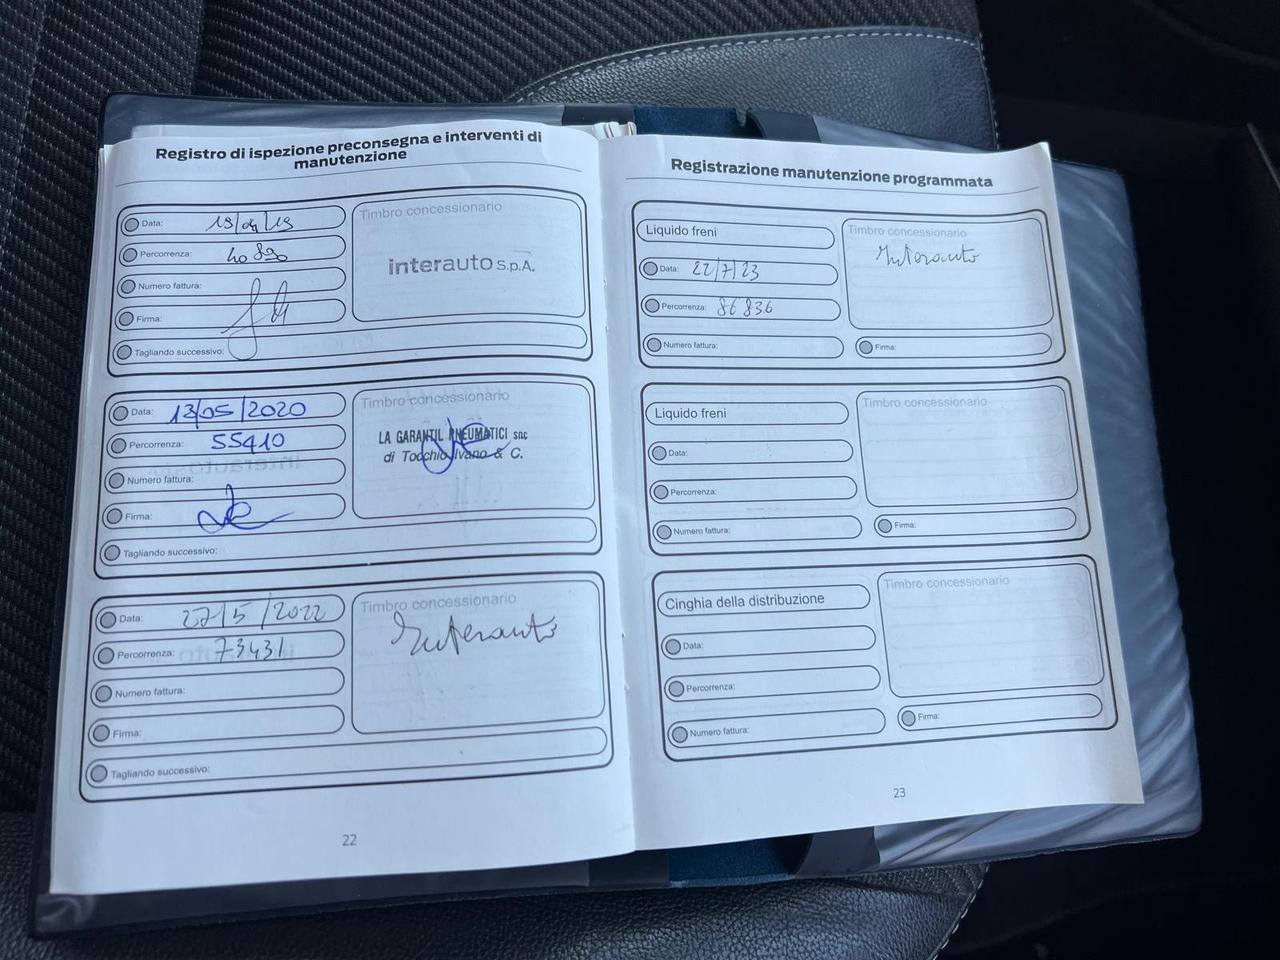 Registro di ispezione preconsegna e interventi di
manutenzione
Data: 19/04/19
Percorrenza: 40890
Numero fattura:
Firma:
Tagliando successivo:
Timbro concessionario
interauto S.p.A.
Data: 13/05/2020
Percorrenza: 55410
Numero fattura:
Firma:
Tagliando successivo:
Timbro concessionario
LA GARANTIL PNEUMATICI snc
di Tocchio Ivano & C.
Data: 27/5/2022
Percorrenza: 73431
Numero fattura:
Firma:
Tagliando successivo:
Timbro concessionario
Interauto
22
Registrazione manutenzione programmata
Liquido freni
Data: 22/7/23
Percorrenza: 86836
Numero fattura:
Timbro concessionario
Interauto
Firma:
Liquido freni
Data:
Percorrenza:
Numero fattura:
Timbro concessionario
Firma:
Cinghia della distribuzione
Data:
Percorrenza:
Numero fattura:
Timbro concessionario
Firma:
23